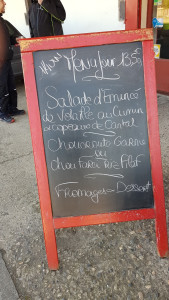 Menu Jour 13.50
Salade d'Émincé
de Volaille au Cumin
et copeaux de Cantal
Choucroute Garnie
ou
Chou Farci Riz Pilaf
Fromage ou Dessert